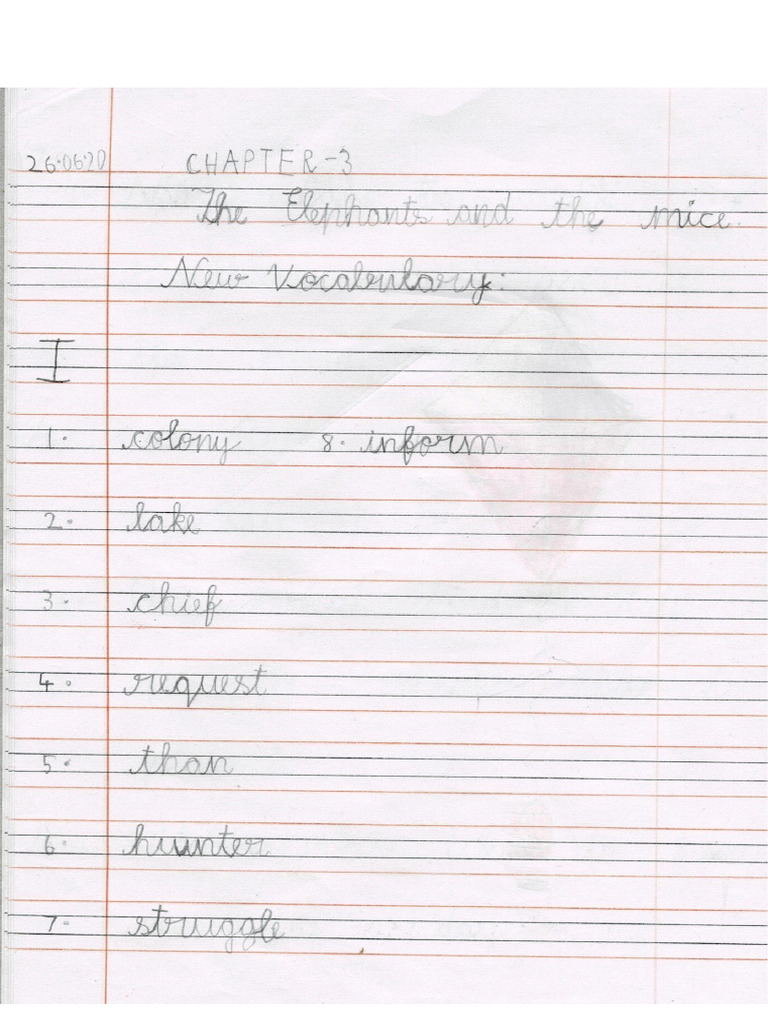 26.06.20 CHAPTER-3
The Elephants and the mice.
New Vocabulary:
I
1. colony 8. inform
2. lake
3. chief
4. request
5. than
6. hunter
7. struggle